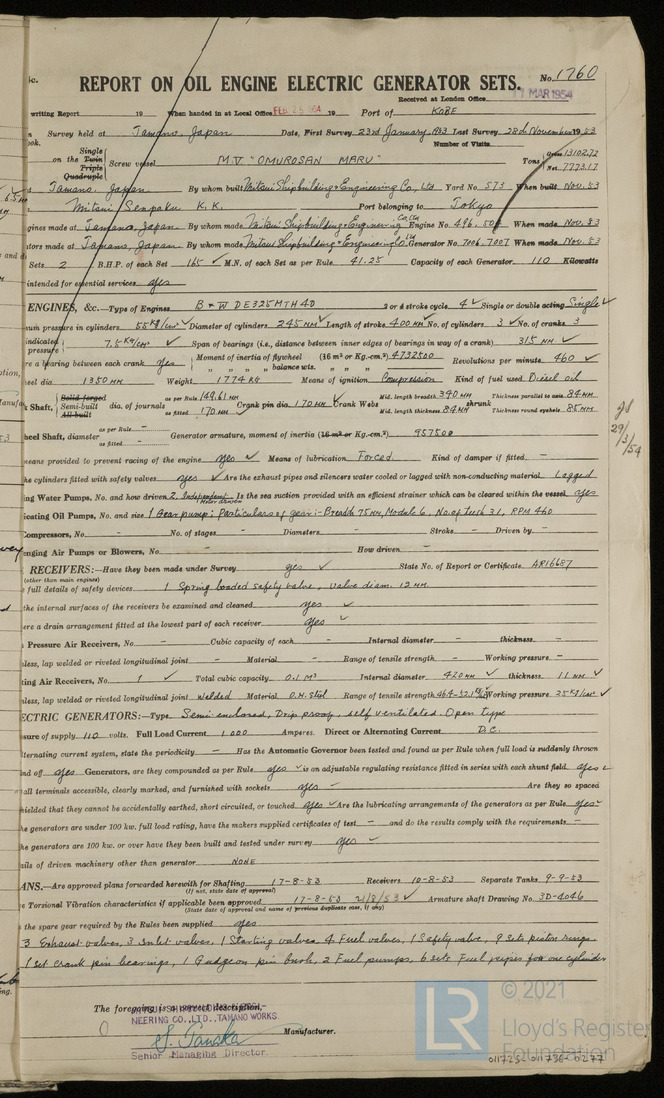 REPORT ON OIL ENGINE ELECTRIC GENERATOR SETS. No. 1760
Received at London Office 11 MAR 1954
writing Report 19 When handed in at Local Office FEB. 25 1954 19 Port of KOBE
Survey held at Tamano, Japan Date, First Survey 23rd January, 1953 Last Survey 28th November 1953
Number of Visits
on the Single Twin Triple Quadruple Screw vessel M.V "OMUROSAN MARU" Tons Gross 13102.72 Net 7773.17
Tamano, Japan By whom built Mitsui Shipbuilding & Engineering Co., Ltd Yard No. 573 When built Nov. 53
Mitsui Senpaku K. K. Port belonging to Tokyo
gines made at Tamano, Japan By whom made Mitsui Shipbuilding & Engineering Co Ltd Engine No. 496. When made Nov. 53
tors made at Tamano, Japan By whom made Mitsui Shipbuilding & Engineering Co. Ltd Generator No. 7006, 7007 When made Nov. 53
Sets 2 B.H.P. of each Set 165 M.N. of each Set as per Rule 41.25 Capacity of each Generator 110 Kilowatts
intended for essential services yes
ENGINES, &c.—Type of Engines B & W DE325MTH40 2 or 4 stroke cycle 4 Single or double acting Single
um pressure in cylinders 55 Kg/cm² Diameter of cylinders 245 MM Length of stroke 400 MM No. of cylinders 3 No. of cranks 3
indicated pressure 7.5 Kg/cm² Span of bearings (i.e., distance between inner edges of bearings in way of a crank) 315 MM
re a bearing between each crank Yes Moment of inertia of flywheel (16 m² or Kg.-cm.²) 4732500 Revolutions per minute 460
" " " balance wts.
eel dia 1350 MM Weight 1774 KG Means of ignition Compression Kind of fuel used Diesel oil
Shaft, Solid forged Semi-built All built dia. of journals as per Rule 149.61 MM as fitted 170 MM Crank pin dia. 170 MM Crank Webs Mid. length breadth 390 MM Mid. length thickness 84 MM shrunk Thickness parallel to axis 84 MM Thickness round eyehole 85 MM
heel Shaft, diameter as per Rule - as fitted - Generator armature, moment of inertia (16 m² or Kg.-cm.²) 957500
means provided to prevent racing of the engine yes Means of lubrication Forced Kind of damper if fitted -
he cylinders fitted with safety valves yes Are the exhaust pipes and silencers water cooled or lagged with non-conducting material Lagged
ng Water Pumps, No. and how driven 2. Independent Motor driven Is the sea suction provided with an efficient strainer which can be cleared within the vessel yes
icating Oil Pumps, No. and size 1 Gear pump: Particulars of gear:- Breadth 75 MM, Module 6, No. of teeth 31, RPM 460
Compressors, No. - No. of stages - Diameters - Stroke Driven by. -
enging Air Pumps or Blowers, No. - How driven -
RECEIVERS:—Have they been made under Survey yes State No. of Report or Certificate AR16687
(other than main engines)
full details of safety devices 1 Spring loaded safety valve, valve diam. 12 MM
the internal surfaces of the receivers be examined and cleaned yes
ere a drain arrangement fitted at the lowest part of each receiver yes
Pressure Air Receivers, No. - Cubic capacity of each - Internal diameter - thickness -
less, lap welded or riveted longitudinal joint - Material - Range of tensile strength - Working pressure -
ting Air Receivers, No. 1 Total cubic capacity 0.1 M³ Internal diameter 420 MM thickness 11 MM
less, lap welded or riveted longitudinal joint Welded Material O.H. Steel Range of tensile strength Working pressure 25 Kg/cm²
ECTRIC GENERATORS:—Type Semi enclosed, Drip proof, self ventilated. Open type
sure of supply 110 volts. Full Load Current 1000 Amperes. Direct or Alternating Current D.C.
lternating current system, state the periodicity - Has the Automatic Governor been tested and found as per Rule when full load is suddenly thrown
nd off yes Generators, are they compounded as per Rule yes is an adjustable regulating resistance fitted in series with each shunt field yes
all terminals accessible, clearly marked, and furnished with sockets yes Are they so spaced
hielded that they cannot be accidentally earthed, short circuited, or touched yes Are the lubricating arrangements of the generators as per Rule yes
he generators are under 100 kw. full load rating, have the makers supplied certificates of test - and do the results comply with the requirements -
he generators are 100 kw. or over have they been built and tested under survey yes
ails of driven machinery other than generator NONE
ANS.—Are approved plans forwarded herewith for Shafting 17-8-53 Receivers 10-8-53 Separate Tanks 9-9-53
(If not, state date of approval)
Torsional Vibration characteristics if applicable been approved 17-8-53 21/8/53 Armature shaft Drawing No. 3D-4046
(State date of approval and name of previous duplicate case, if any)
the spare gear required by the Rules been supplied yes
3 Exhaust valves, 3 Inlet valves, 1 Starting valves 4 Fuel valves, 1 Safety valve, 9 Sets piston rings
1 set crank pin bearings, 1 Gudgeon pin bush, 2 Fuel pumps, 6 sets Fuel pipes for one cylinder
29/3/54
The foregoing is a correct description,
NEERING CO., LTD., TAMANO WORKS.
S. Tanaka Manufacturer.
Senior Managing Director.
LR © 2021
Lloyd's Register
Foundation
011725-011738-0277